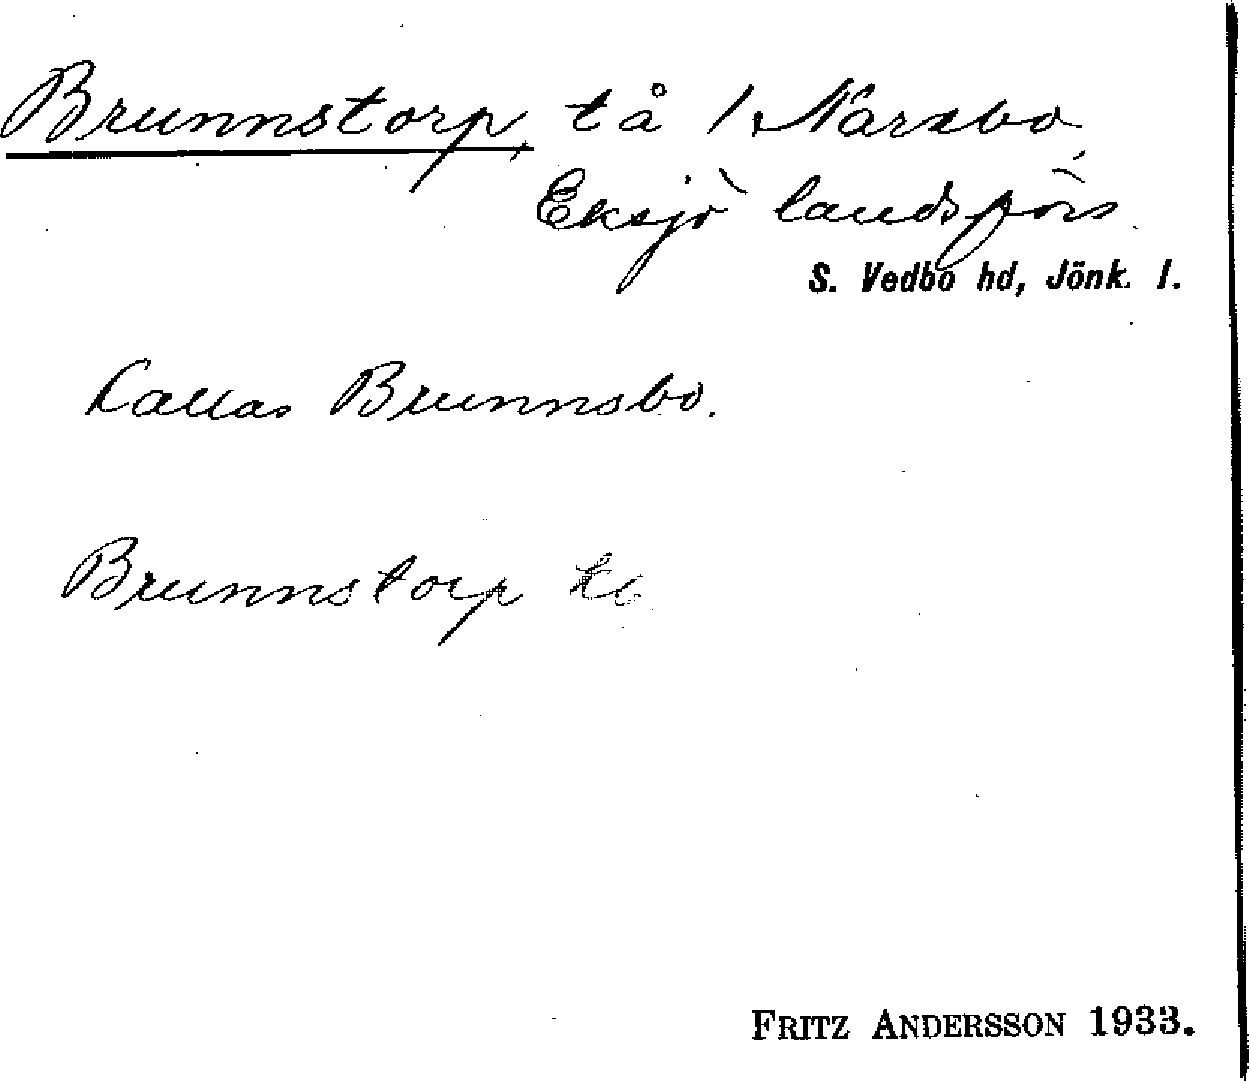 Brunnstorp, tå / Narsbo
Eksjö landsförs.
S. Vedbo hd, Jönk. l.
Kallas Brunnsbo.
Brunnstorp
FRITZ ANDERSSON 1933.